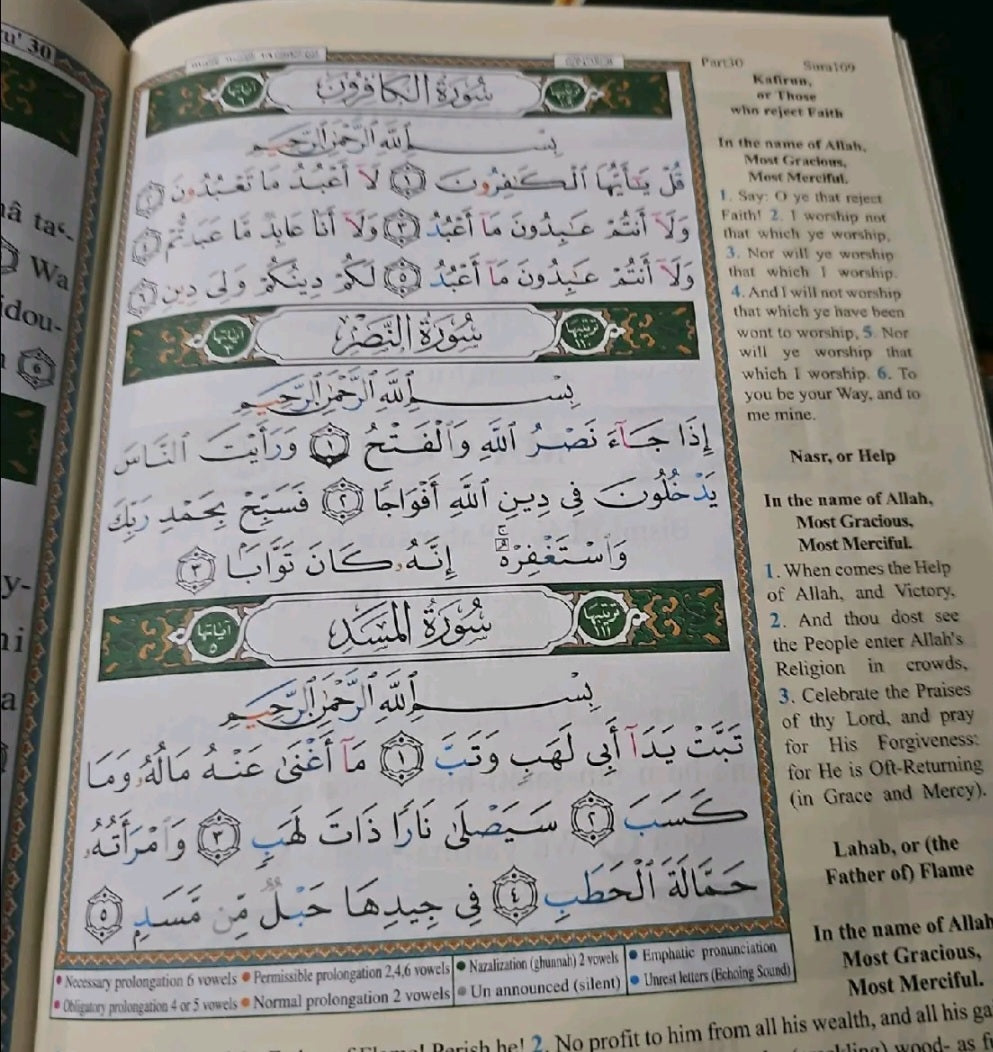 u' 30
Part30
Sura109
سُورَةُ الكَافِرُونَ
بِسْمِ اللَّهِ الرَّحْمَٰنِ الرَّحِيمِ
قُلْ يَـٰٓأَيُّهَا ٱلْكَـٰفِرُونَ ١ لَآ أَعْبُدُ مَا تَعْبُدُونَ ٢
وَلَآ أَنتُمْ عَـٰبِدُونَ مَآ أَعْبُدُ ٣ وَلَآ أَنَا۠ عَابِدٌ مَّا عَبَدتُّمْ ٤
وَلَآ أَنتُمْ عَـٰبِدُونَ مَآ أَعْبُدُ ٥ لَكُمْ دِينُكُمْ وَلِىَ دِينِ ٦
ترتيبها ١١٠
سُورَةُ النَّصْرِ
آياتها ٣
بِسْمِ اللَّهِ الرَّحْمَٰنِ الرَّحِيمِ
إِذَا جَآءَ نَصْرُ ٱللَّهِ وَٱلْفَتْحُ ١ وَرَأَيْتَ ٱلنَّاسَ
يَدْخُلُونَ فِى دِينِ ٱللَّهِ أَفْوَاجًا ٢ فَسَبِّحْ بِحَمْدِ رَبِّكَ
وَٱسْتَغْفِرْهُ ۚ إِنَّهُۥ كَانَ تَوَّابًۢا ٣
ترتيبها ١١١
سُورَةُ المَسَدِ
آياتها ٥
بِسْمِ اللَّهِ الرَّحْمَٰنِ الرَّحِيمِ
تَبَّتْ يَدَآ أَبِى لَهَبٍ وَتَبَّ ١ مَآ أَغْنَىٰ عَنْهُ مَالُهُۥ وَمَا
كَسَبَ ٢ سَيَصْلَىٰ نَارًا ذَاتَ لَهَبٍ ٣ وَٱمْرَأَتُهُۥ
حَمَّالَةَ ٱلْحَطَبِ ٤ فِى جِيدِهَا حَبْلٌ مِّن مَّسَدٍۭ ٥
Kafirun,
or Those
who reject Faith
In the name of Allah,
Most Gracious,
Most Merciful.
1. Say: O ye that reject
Faith! 2. I worship not
that which ye worship,
3. Nor will ye worship
that which I worship.
4. And I will not worship
that which ye have been
wont to worship, 5. Nor
will ye worship that
which I worship. 6. To
you be your Way, and to
me mine.
Nasr, or Help
In the name of Allah,
Most Gracious,
Most Merciful.
1. When comes the Help
of Allah, and Victory,
2. And thou dost see
the People enter Allah's
Religion in crowds,
3. Celebrate the Praises
of thy Lord, and pray
for His Forgiveness:
for He is Oft-Returning
(in Grace and Mercy).
Lahab, or (the
Father of) Flame
In the name of Allah
Most Gracious,
Most Merciful.
Necessary prolongation 6 vowels Permissible prolongation 2,4,6 vowels Nazalization (ghunnah) 2 vowels Emphatic pronunciation
Obligatory prolongation 4 or 5 vowels Normal prolongation 2 vowels Un announced (silent) Unrest letters (Echoing Sound)
Perish he! 2. No profit to him from all his wealth, and all his ga
wood- as f
â ta‘-
Wa
idou-
٦
y-
ni
a